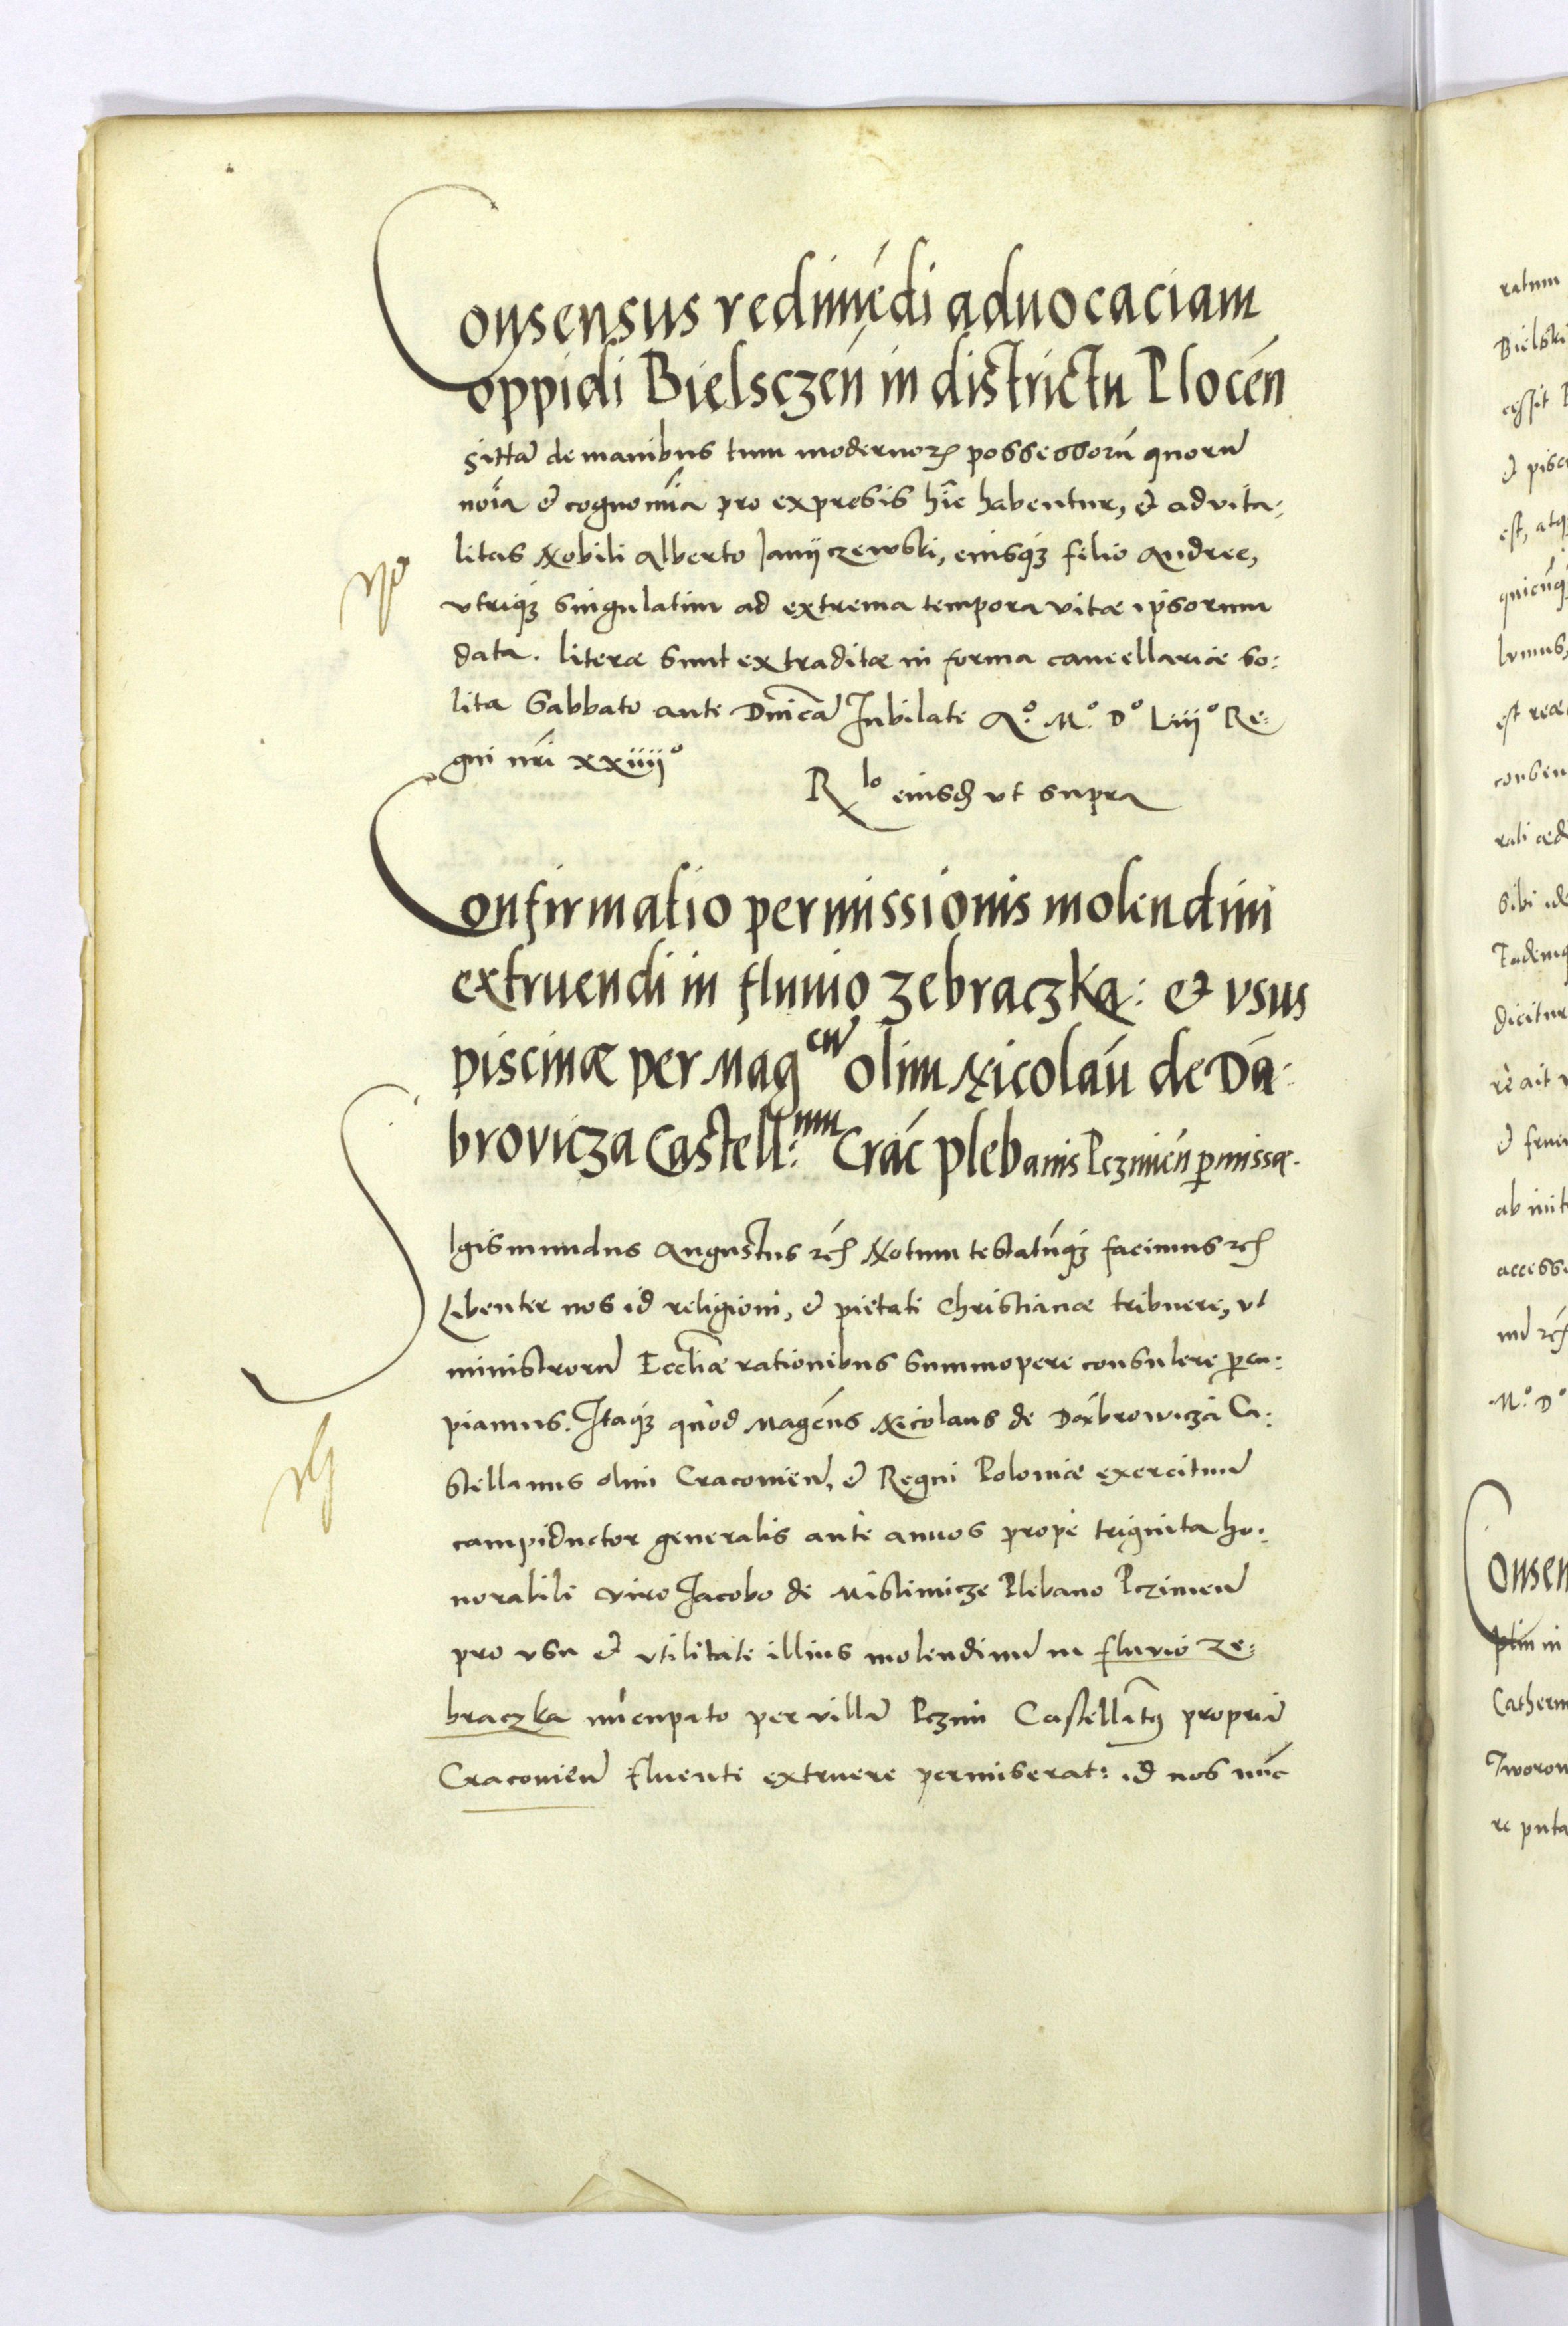 Consensus redimēdi aduocaciam
oppidi Bielsczeń in districtu Plocēn
sittā de manibus tum modernoꝝ possessorū quorū
noīa et cognomīa pro expresis hīc habentur, et ad vita-
litas Nobili Alberto Janijczewski, eiusqꝫ filio Andree,
vtriqꝫ singulatim ad extrema tempora vitæ ipsorum
data. literæ sunt extraditæ in forma cancellariæ so-
lita Sabbato ante Dnīcā Jubilate Aº. Mº. Dº Liiiº Re-
gni nrī xxiiiiº
Rlo eiusd vt supra
Confirmatio permissionis molendini
extruendi in fluuio Zebraczka: et vsus
piscinæ per Magcū olim Nicolaū de Dą-
brovicza Castell:num Crać plebanis Pczimień pmissæ.
Sigismundus Augustus rc̄ Notum testatūqꝫ facimus rc̄
Libenter nos id religioni, et pietati Christianæ tribuere, vt
ministrorū Eccliæ rationibus summopere consulere pcu-
piamus. Itaqꝫ quòd Magcūs Nicolaus de Dąbrowicza Ca-
stellanus olim Cracovień, et Regni Poloniæ exercituū
campiductor generalis ante annos prope triginta ho-
norabili viro Jacobo de Mistimicze Plebano Pczimień
pro vsu et vtilitate illius molendinū in fluvio Ze-
braczka nūcupato per villā Pczim Castellatꝯ propriā
Cracovień fluente extruere permiserat: id nos nūc
ratum
Bielski
cessit
et pisci
est, atq
quicūq
lumus,
est reæ
consen
rali æd
sibi ide
Tademq
dicitur
re ait
et frui
ab init
accesse
Mº. Dº
Consen
Catherin
Tworow
re puta